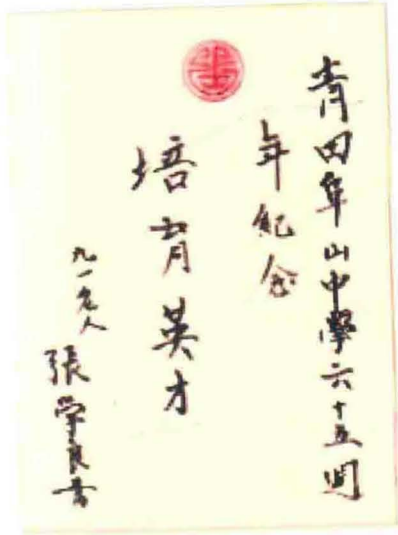 青田阜山中學六十五周
年紀念
培育英才
九一老人
張学良書